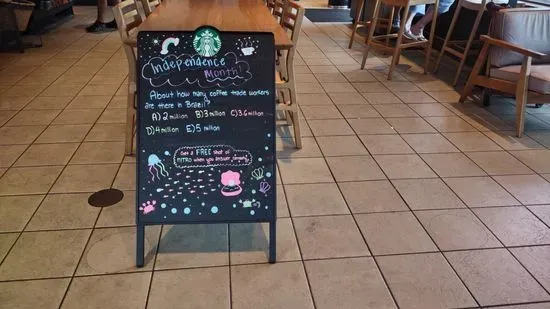 Independence
Month!
About how many coffee trade workers
are there in Brazil?
A) 2 million B) 3 million C) 3.6 million
D) 4 million E) 5 million
Get a FREE shot of
NITRO when you answer correctly!